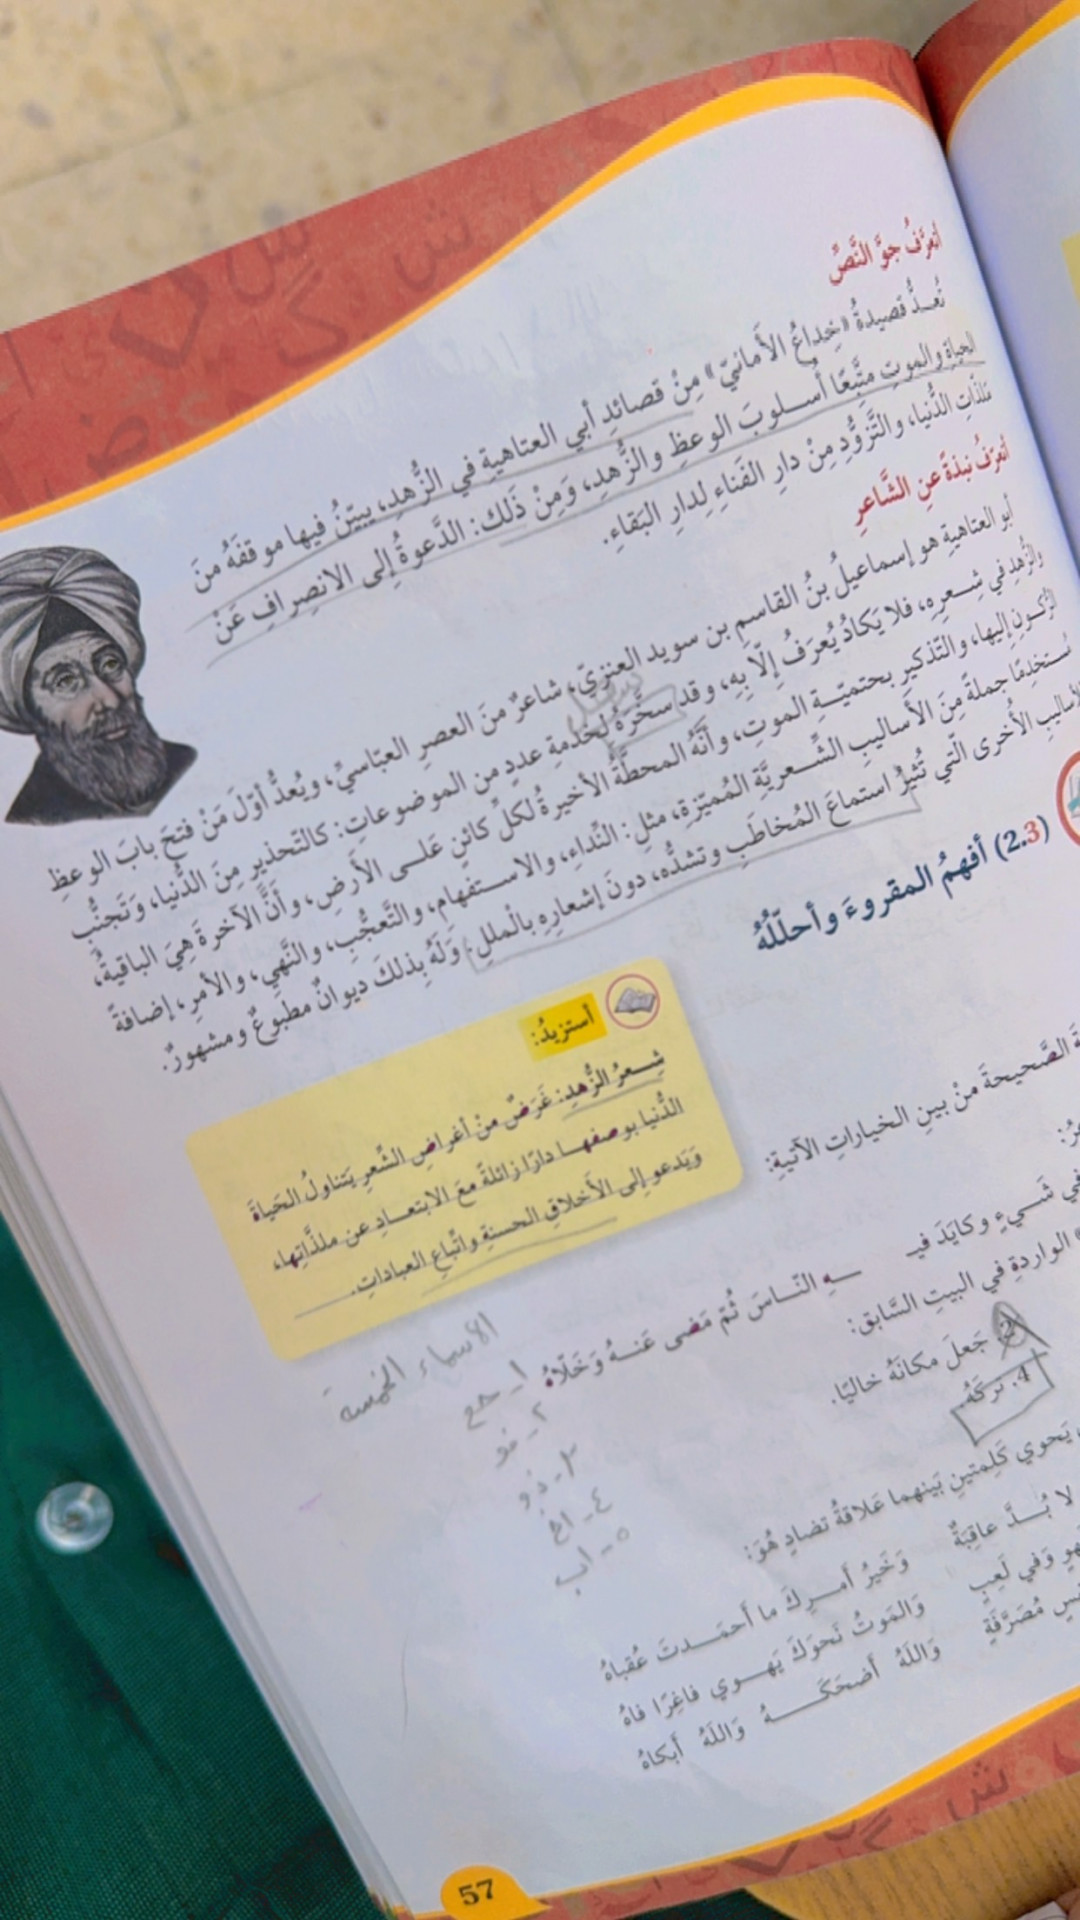 أتعرَّفُ جوَّ النَّصِّ
تُعـدُّ قصيدةُ «خِداعُ الأَمانيّ» مِنْ قصائدِ أبي العتاهيةِ في الزُّهدِ، يبيّنُ فيها موقفَهُ منَ
الحياةِ والموتِ متَّبعًا أُسـلوبَ الوعظِ والزُّهدِ، وَمِنْ ذَلكَ: الدَّعوةُ إلى الانصِرافِ عَنْ
مَلذّاتِ الدُّنيا، والتَّزوُّدِ مِنْ دارِ الفَناءِ لِدارِ البَقاءِ.
أتعرَّفُ نبذةً عنِ الشَّاعرِ
أبو العتاهيةِ هو إسماعيلُ بنُ القاسمِ بن سويد العنزيّ، شاعرٌ منَ العصرِ العبّاسيِّ، ويُعدُّ أوّلَ مَنْ فتحَ بابَ الوعظِ
والزُّهدِ في شِـعرِه، فلا يَكادُ يُعرَفُ إلّا بِهِ، وقد سخَّرَهُ لخدمةِ عددٍ من الموضوعاتِ: كالتّحذيرِ مِنَ الدُّنيا، وَتَجنُّبِ
الرُّكـونِ إليها، والتّذكيرِ بحتميّـةِ الموتِ، وأنَّهُ المحطّةُ الأخيرةُ لكلِّ كائنٍ عَلـى الأرضِ، وأنَّ الآخرةَ هِيَ الباقيةُ،
مُسـتخدِمًا جملةً مِنَ الأَساليبِ الشِّـعريَّةِ المُميّزةِ، مثلِ: النِّداءِ، والاسـتفهامِ، والتَّعجُّبِ، والنَّهيِ، والأمرِ، إضافةً
الأساليبِ الأُخرى الّتي تُثيرُ استماعَ المُخاطَبِ وتشدُّه، دونَ إشعارِهِ بالْمللِ؛ وَلَهُ بِذلكَ ديوانٌ مطبوعٌ ومشهورٌ.
(2.3) أفهمُ المقروءَ وأحلّلُهُ
أستزيدُ:
شِـعرُ الزُّهدِ: غَرَضٌ منْ أغراضِ الشِّعرِ يَتناولُ الحَياةَ
الدُّنيا بوصفهـا دارًا زائلةً معَ الابتعـادِ عن ملذّاتِها،
وَيَدعو إلى الأَخلاقِ الحسنةِ واتّباعِ العباداتِ.
الصَّحيحةَ منْ بينِ الخياراتِ الآتيةِ:
في شَـيءٍ وكايَدَ فيـ ـهِ النّـاسَ ثُمّ مَضى عَنـهُ وَخَلّاهُ
الواردةِ في البيتِ السَّابق:
2. جَعلَ مكانَهُ خاليًا.
4. تركَهُ.
الأسماء الخمسة
١- حم
٢- فو
٣- ذو
٤- اخ
٥- اب
يَحوي كَلِمتينِ بَينهما عَلاقةُ تضادٍ هُوَ:
لا بُـدَّ عاقِبَةٌ وَخَيرُ أمـرِكَ ما أَحمَـدتَ عُقباهُ
وَفي لَعِبٍ وَالمَوتُ نَحوَكَ يَهـوي فاغِرًا فاهُ
مُصَرَّفَةٍ وَاللهُ أَضحَكَـهُ وَاللهُ أَبكاهُ
57